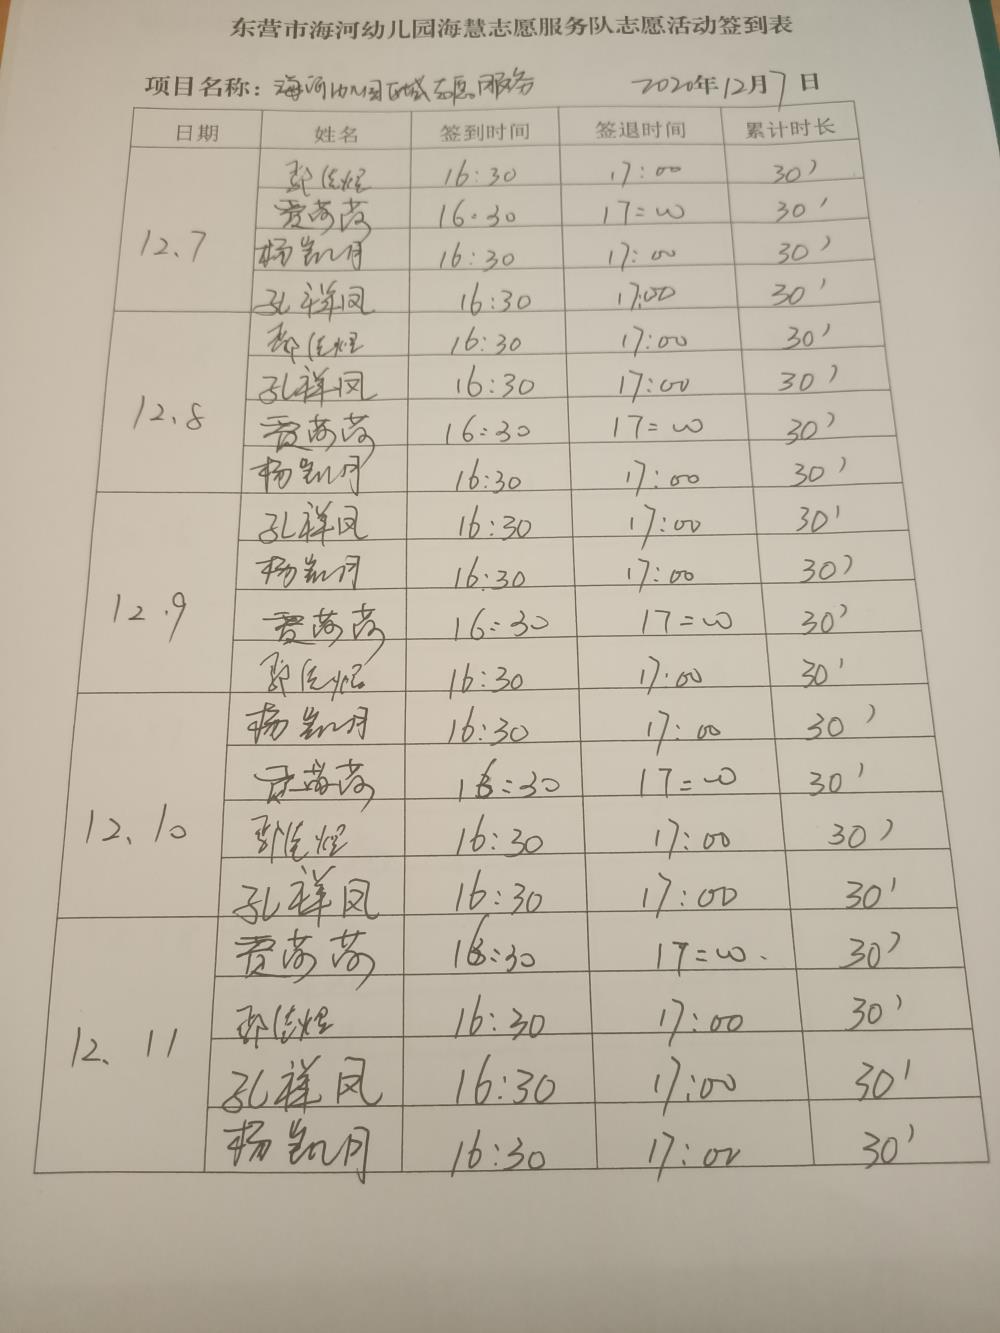 东营市海河幼儿园海慧志愿服务队志愿活动签到表
项目名称：海河幼儿园区域志愿服务 2020年12月7日
日期 姓名 签到时间 签退时间 累计时长
12.7
16:30 17:00 30'
16:30 17=00 30'
杨凯月 16:30 17:00 30'
孔祥凤 16:30 17:00 30'
12.8
16:30 17:00 30'
孔祥凤 16:30 17:00 30'
16=30 17=00 30'
杨凯月 16:30 17:00 30'
12.9
孔祥凤 16:30 17:00 30'
杨凯月 16:30 17:00 30'
16=30 17=00 30'
16:30 17:00 30'
12.10
杨凯月 16:30 17:00 30'
16=30 17=00 30'
16:30 17:00 30'
孔祥凤 16:30 17:00 30'
12.11
16:30 17=00. 30'
16:30 17:00 30'
孔祥凤 16:30 17:00 30'
杨凯月 16:30 17:00 30'